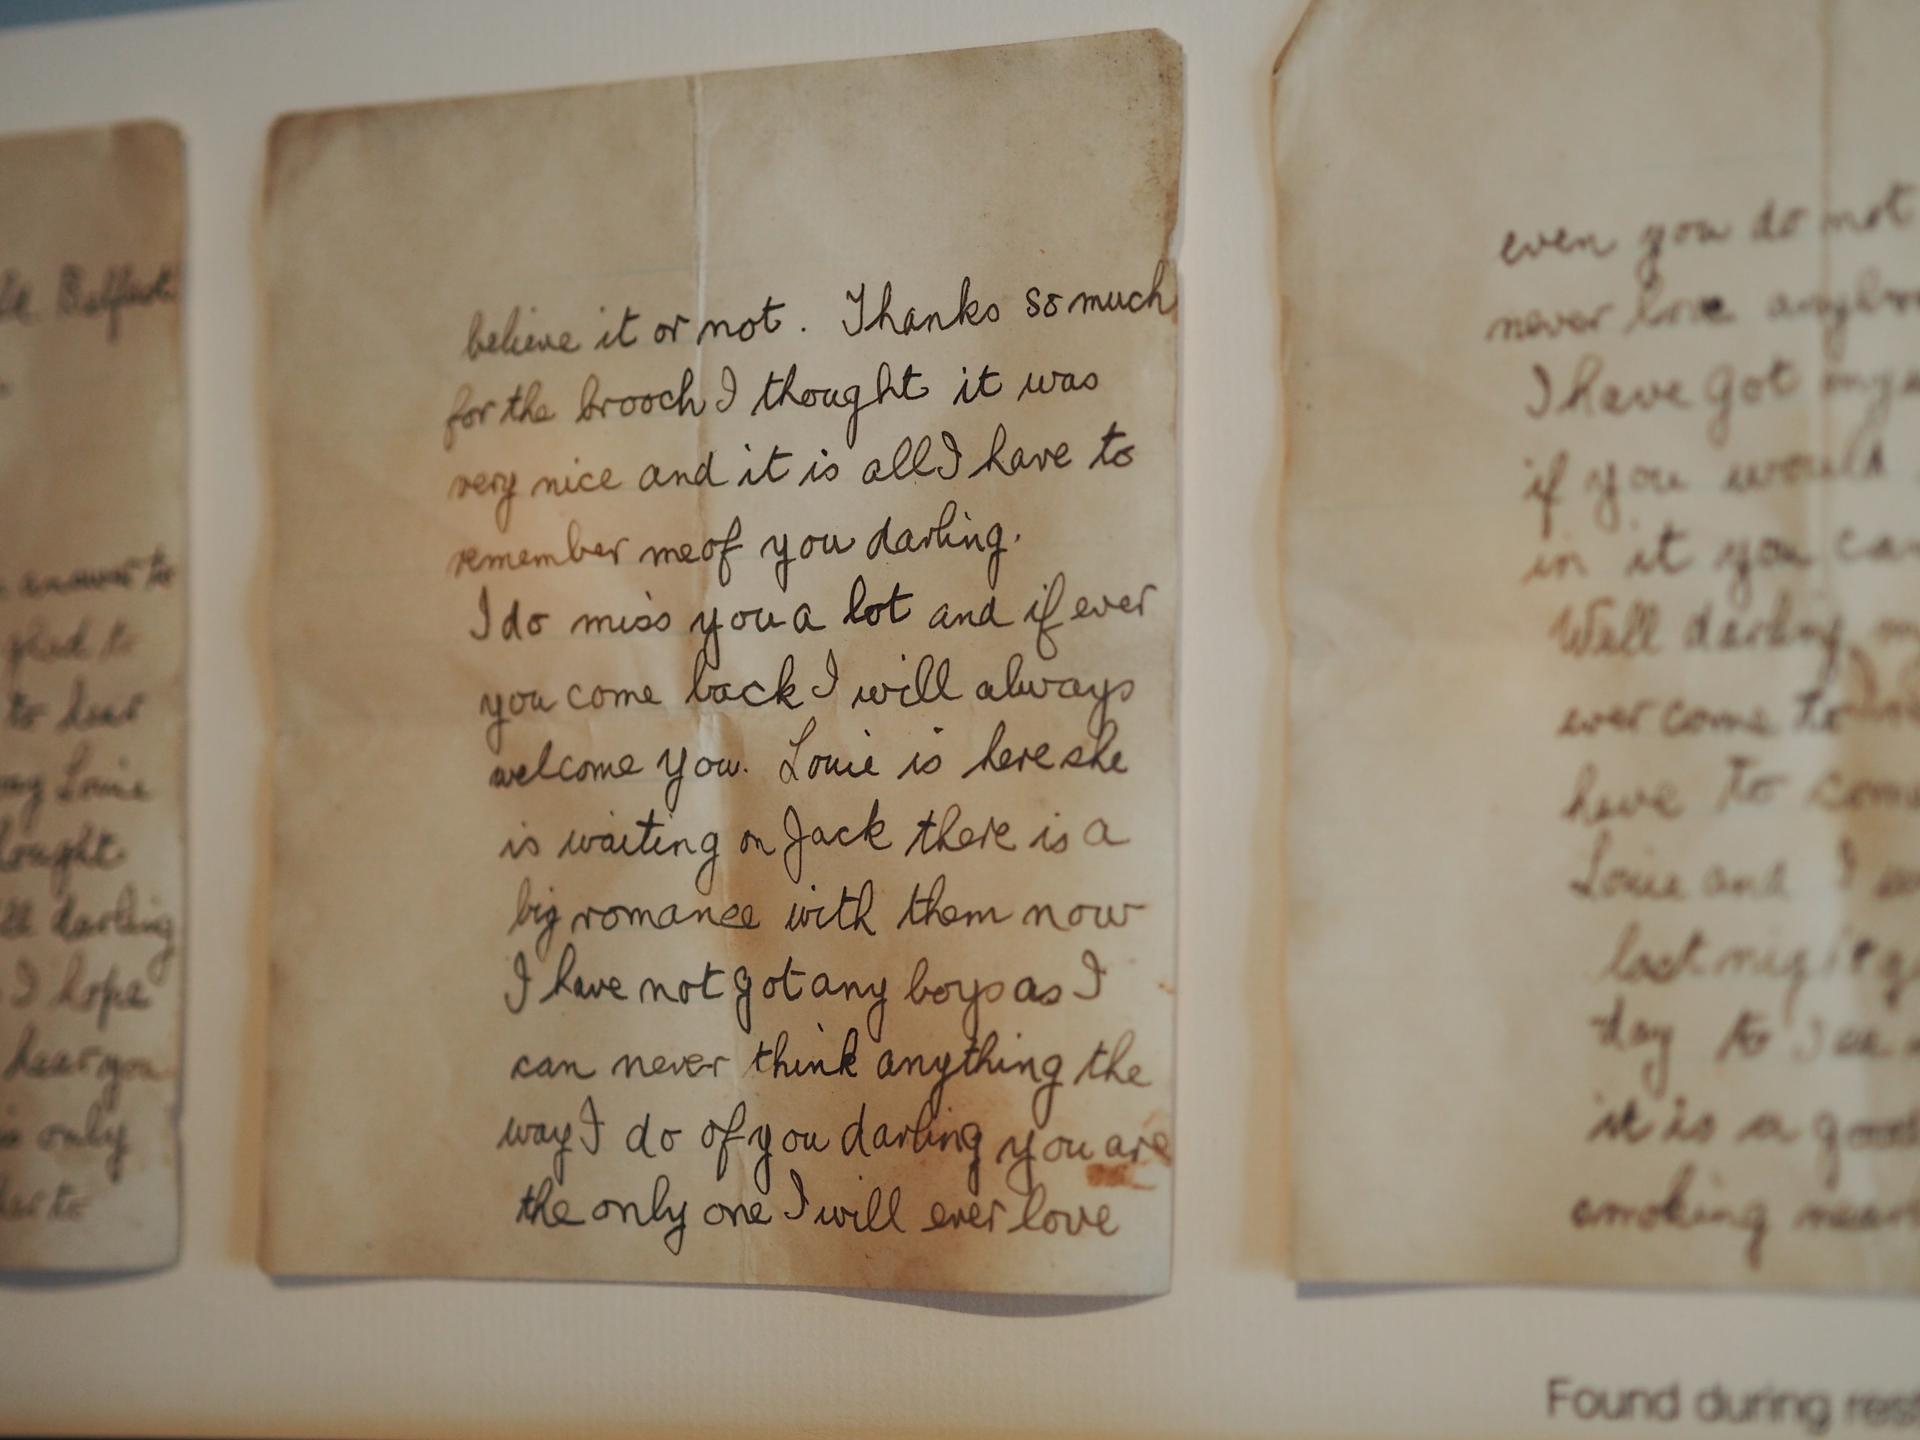 Belfast
answer to
glad to
to hear
my Louie
thought
darling
I hope
hear you
is only
to
believe it or not. Thanks so much
for the brooch I thought it was
very nice and it is all I have to
remember me of you darling.
I do miss you a lot and if ever
you come back I will always
welcome you. Louie is here she
is waiting on Jack there is a
big romance with them now
I have not got any boys as I
can never think anything the
way I do of you darling you are
the only one I will ever love
even you do not
never love
I have got
if you would
in it you can
Well darling
ever come to
have to come
Louie and I
last night
day to see
it is a good
smoking
Found during